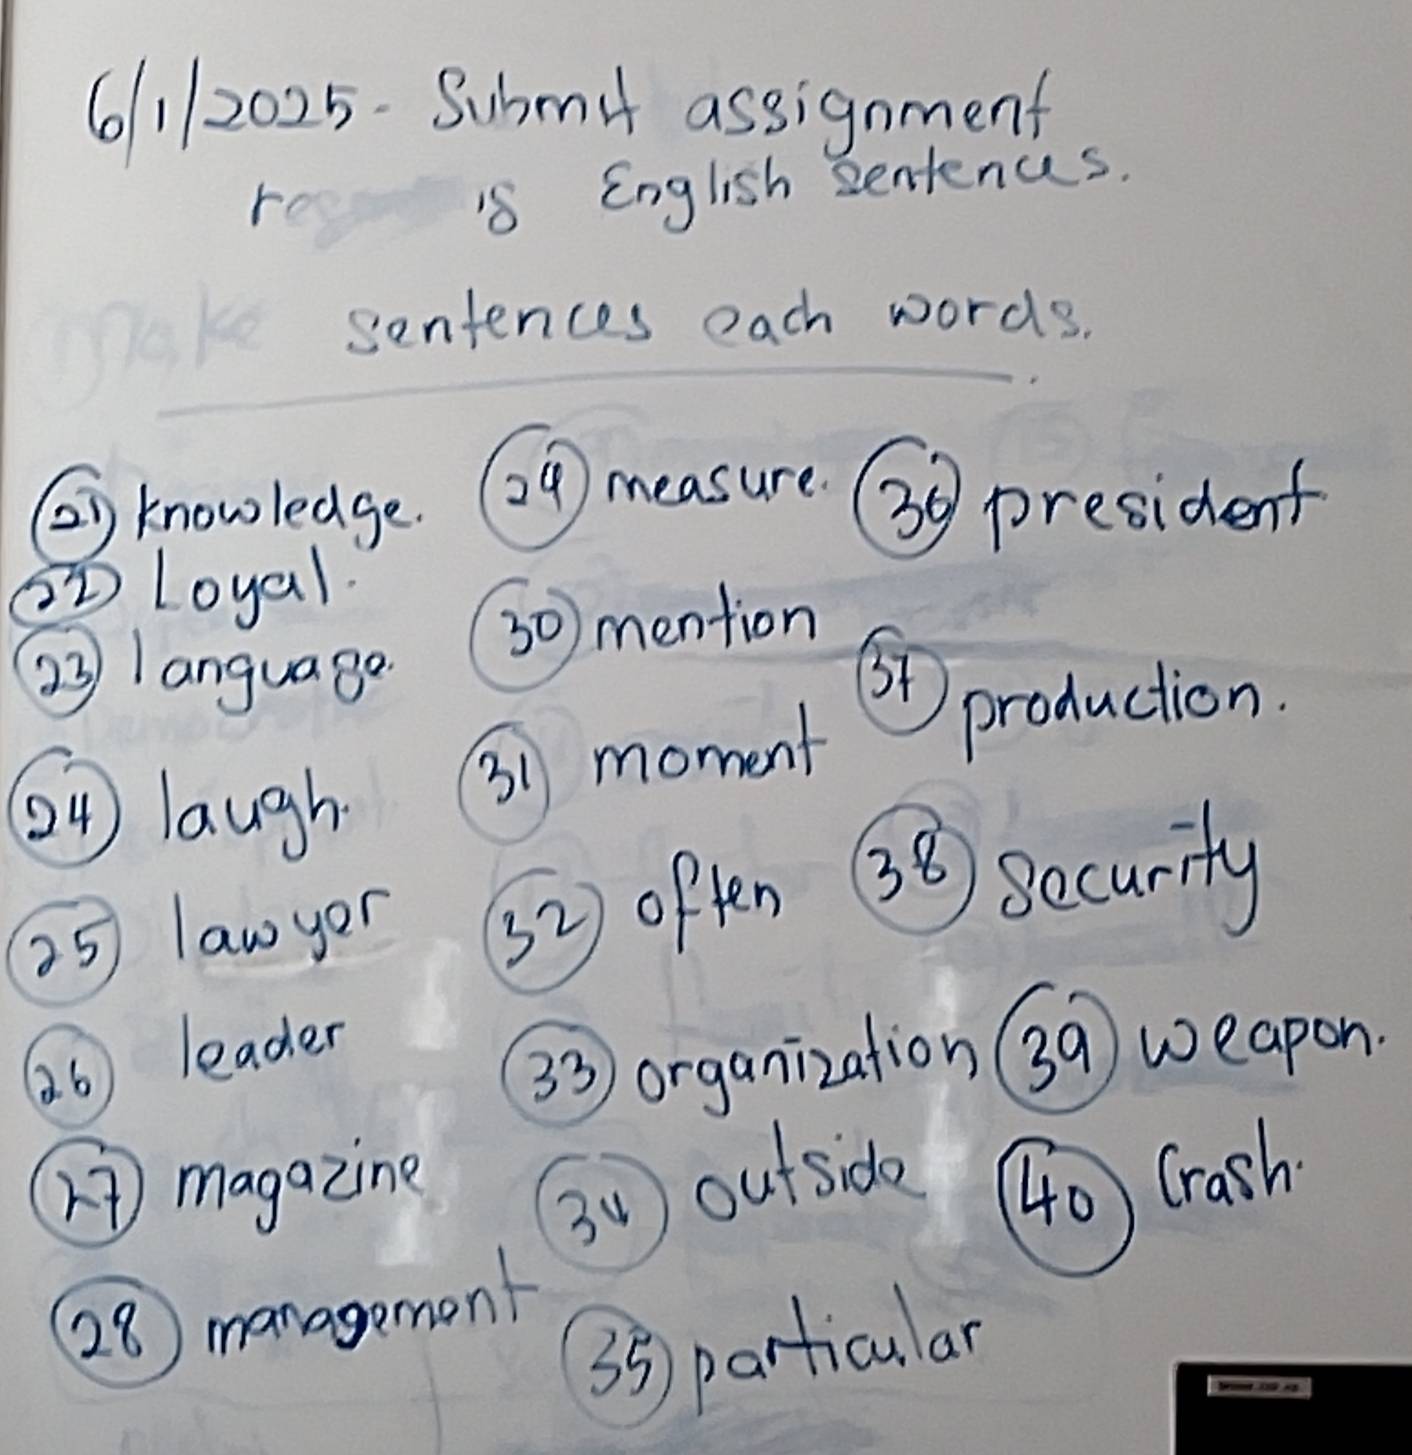 6/1/2025 - Submit assignment
is English sentences.
Make sentences each words.
21 knowledge.
22 Loyal.
23 language.
24 laugh.
25 lawyer
26 leader
27 magazine
28 management
29 measure.
30 mention
31 moment
32 often
33 organization
34 outside
35 particular
36 president
37 production.
38 security
39 weapon.
40 Crash.